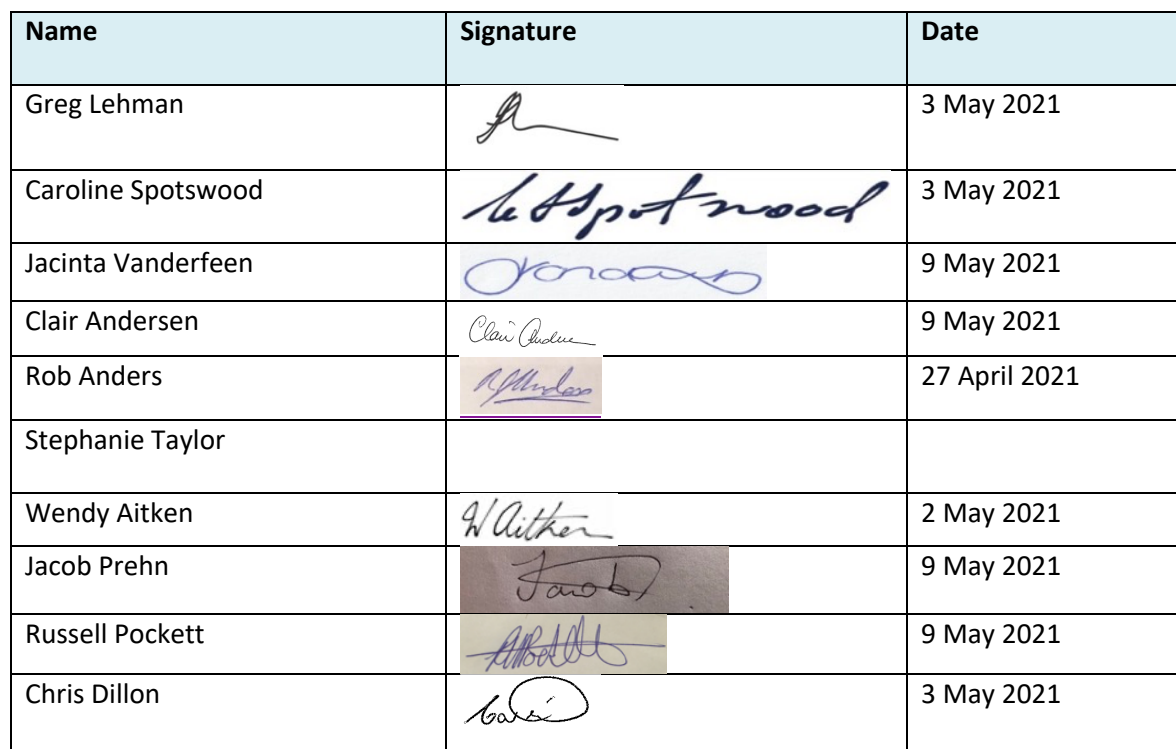 Name Signature Date
Greg Lehman 3 May 2021
Caroline Spotswood 3 May 2021
Jacinta Vanderfeen 9 May 2021
Clair Andersen 9 May 2021
Rob Anders 27 April 2021
Stephanie Taylor
Wendy Aitken W Aitken 2 May 2021
Jacob Prehn Jacob 9 May 2021
Russell Pockett 9 May 2021
Chris Dillon 3 May 2021